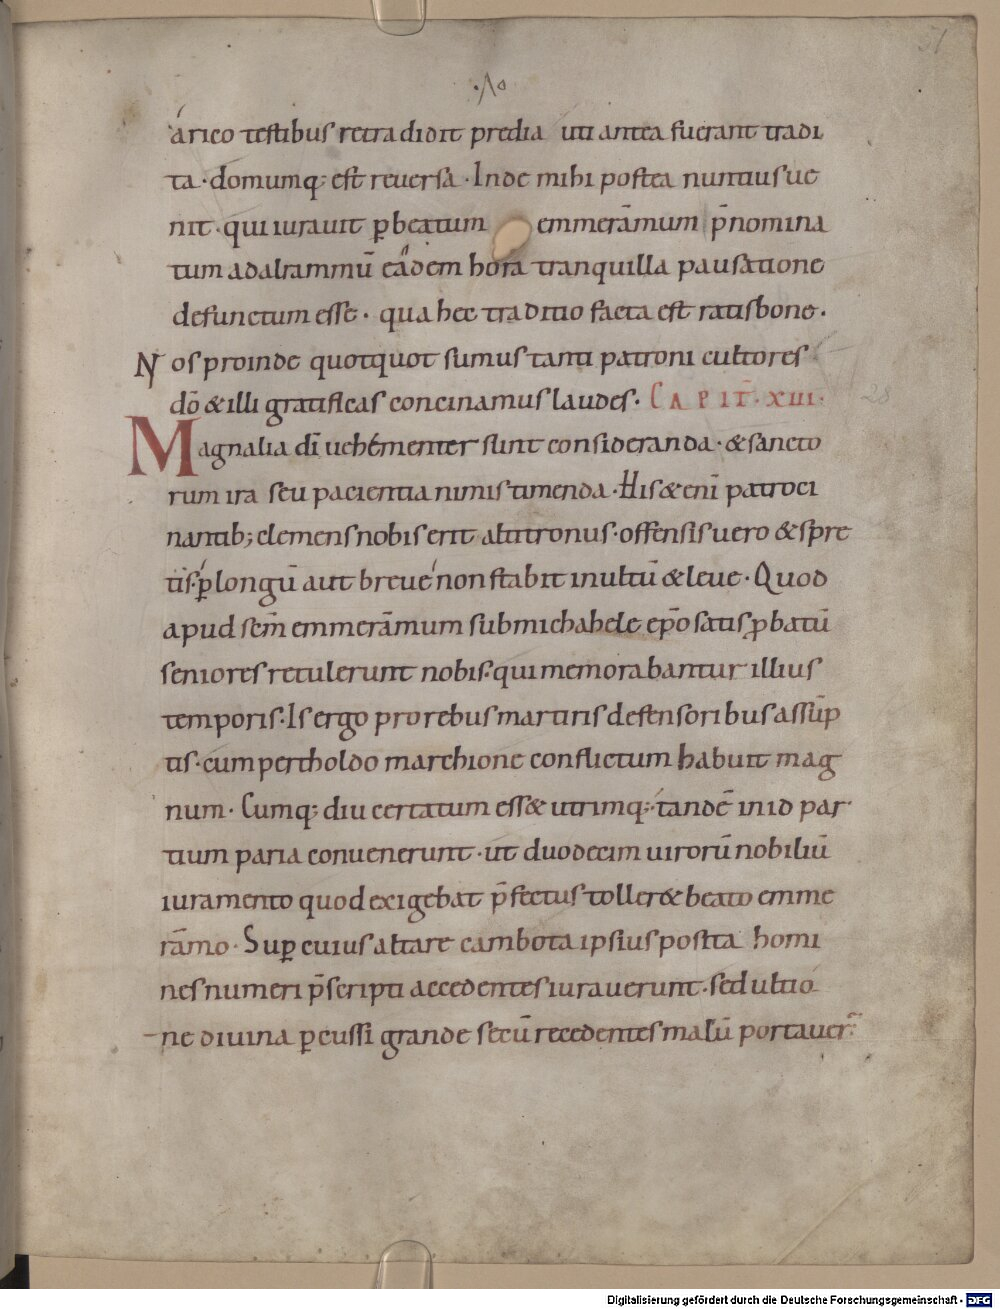 51
·Λo
árico testibus retradidit predia uti antea fuerant tradi
ta · domumq; est reuersa · Inde mihi postea nuntius ue
nit · qui iurauit p̲ beatum emmerāmum p̄nomina
tum adalrammū eādem hora tranquilla pausatione
defunctum esse · qua hec traditio facta est ratisbone ·
Nos proinde quotquot sumus tanti patroni cultores ·
dō & illi gratificas concinamus laudes · CAPIT̄ · XIII ·
28
Magnalia dī uehementer sunt consideranda · & sancto
rum ira seu pacientia nimis timenda · His & enī patroci
nantib; clemens nobis erit altitronus · offensis uero & spre
tis · p̲ longū aut breue non stabit inultū & leue · Quod
apud scm̄ emmerāmum sub michahele ep̄o satis ꝓbatū
seniores retulerunt nobis · qui memorabantur illius
temporis · Is ergo pro rebus martiris defensoribus assūp
tis · cum pertholdo marchione conflictum habuit mag
num · Cumq; diu certatum ess& utrimq; · tandē in id par
tium paria conuenerunt · ut duodecim uirorū nobiliū
iuramento quod exigebat p̄fectus toller& beato emme
rāmo · Sup̲ cuius altare cambota ipsius posita homi
nes numeri p̄scripti accedentes iurauerunt · sed ultio
ne diuina p̲cussi grande secū recedentes malū portauer̄
Digitalisierung gefördert durch die Deutsche Forschungsgemeinschaft - DFG